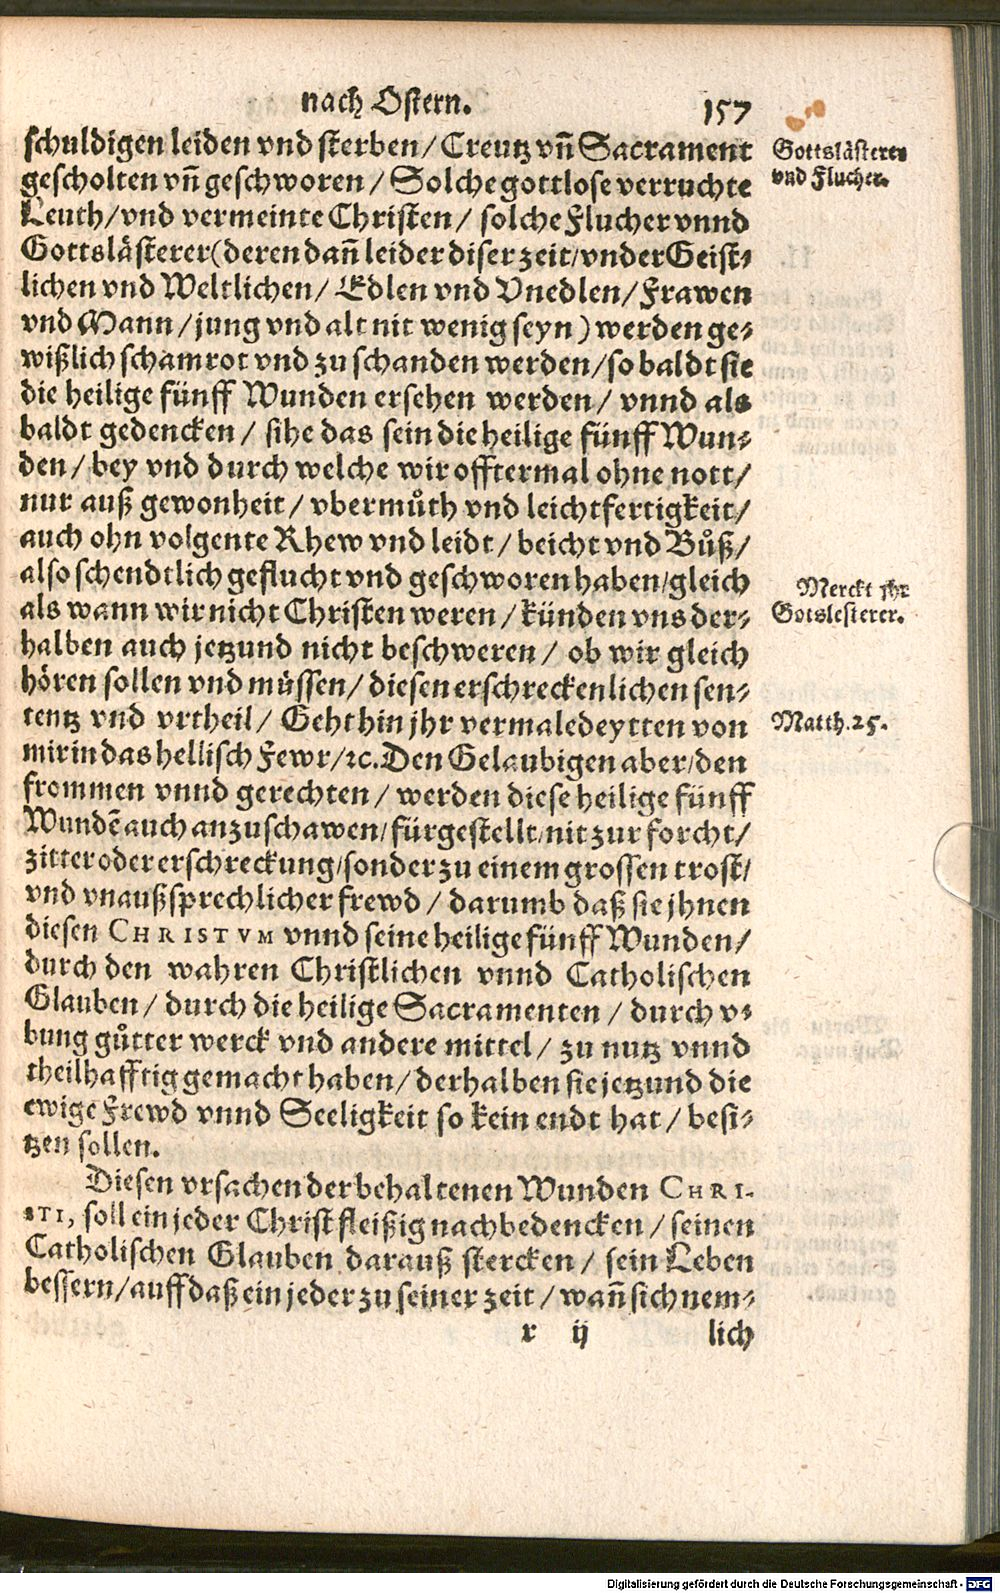 nach Ostern. 157
schuldigen leiden vnd sterben/Creutz vñ Sacrament
gescholten vñ geschworen/Solche gottlose verruchte
Leuth/vnd vermeinte Christen/ solche Flucher vnnd
Gottslästerer(deren dañ leider diser zeit/vnder Geist⸗
lichen vnd Weltlichen/ Edlen vnd Vnedlen/Frawen
vnd Mann/jung vnd alt nit wenig seyn) werden ge⸗
wißlich schamrot vnd zu schanden werden/so baldt sie
die heilige fünff Wunden ersehen werden/ vnnd als
baldt gedencken/ sihe das sein die heilige fünff Wun⸗
den/bey vnd durch welche wir offtermal ohne nott/
nur auß gewonheit/ vbermůth vnd leichtfertigkeit/
auch ohn volgente Rhew vnd leidt/ beicht vnd Bůß/
also schendtlich geflucht vnd geschworen haben/gleich
als wann wir nicht Christen weren/ künden vns der⸗
halben auch jetzund nicht beschweren/ ob wir gleich
hören sollen vnd müssen/ diesen erschreckenlichen sen⸗
tentz vnd vrtheil/ Geht hin jhr vermaledeytten von
mir in das hellisch Fewr/ꝛc. Den Gelaubigen aber/den
frommen vnnd gerechten/ werden diese heilige fünff
Wundē auch anzuschawen/fürgestellt/nit zur forcht/
zitter oder erschreckung/sonder zu einem grossen trost/
vnd vnaußsprechlicher frewd/ darumb daß sie jhnen
diesen CHRISTVM vnnd seine heilige fünff Wunden/
durch den wahren Christlichen vnnd Catholischen
Glauben/ durch die heilige Sacramenten/ durch v⸗
bung gůtter werck vnd andere mittel/ zu nutz vnnd
theilhafftig gemacht haben/ derhalben sie jetzund die
ewige Frewd vnnd Seeligkeit so kein endt hat/ besi⸗
tzen sollen.
Diesen vrsachen der behaltenen Wunden CHRI-
STI, soll ein jeder Christ fleißig nachbedencken/ seinen
Catholischen Glauben darauß stercken/ sein Leben
bessern/auff daß ein jeder zu seiner zeit/ wañ sich nem⸗
r ij lich
Gottslästerer
vnd Flucher.
Merckt jhr
Gotslesterer.
Matth.25.
Digitalisierung gefördert durch die Deutsche Forschungsgemeinschaft - DFG